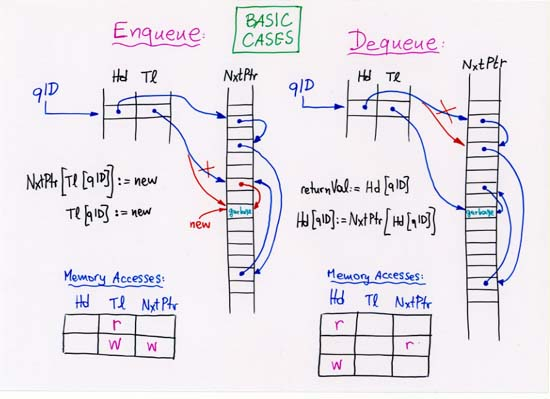 BASIC
CASES
Enqueue:
Hd Tl NxtPtr
qID
NxtPtr[Tl[qID]]:=new
Tl[qID]:=new
garbage
new
Memory Accesses:
Hd Tl NxtPtr
r
W W
Dequeue:
Hd Tl NxtPtr
qID
returnVal:=Hd[qID]
Hd[qID]:=NxtPtr[Hd[qID]]
garbage
Memory Accesses:
Hd Tl NxtPtr
r
r
W